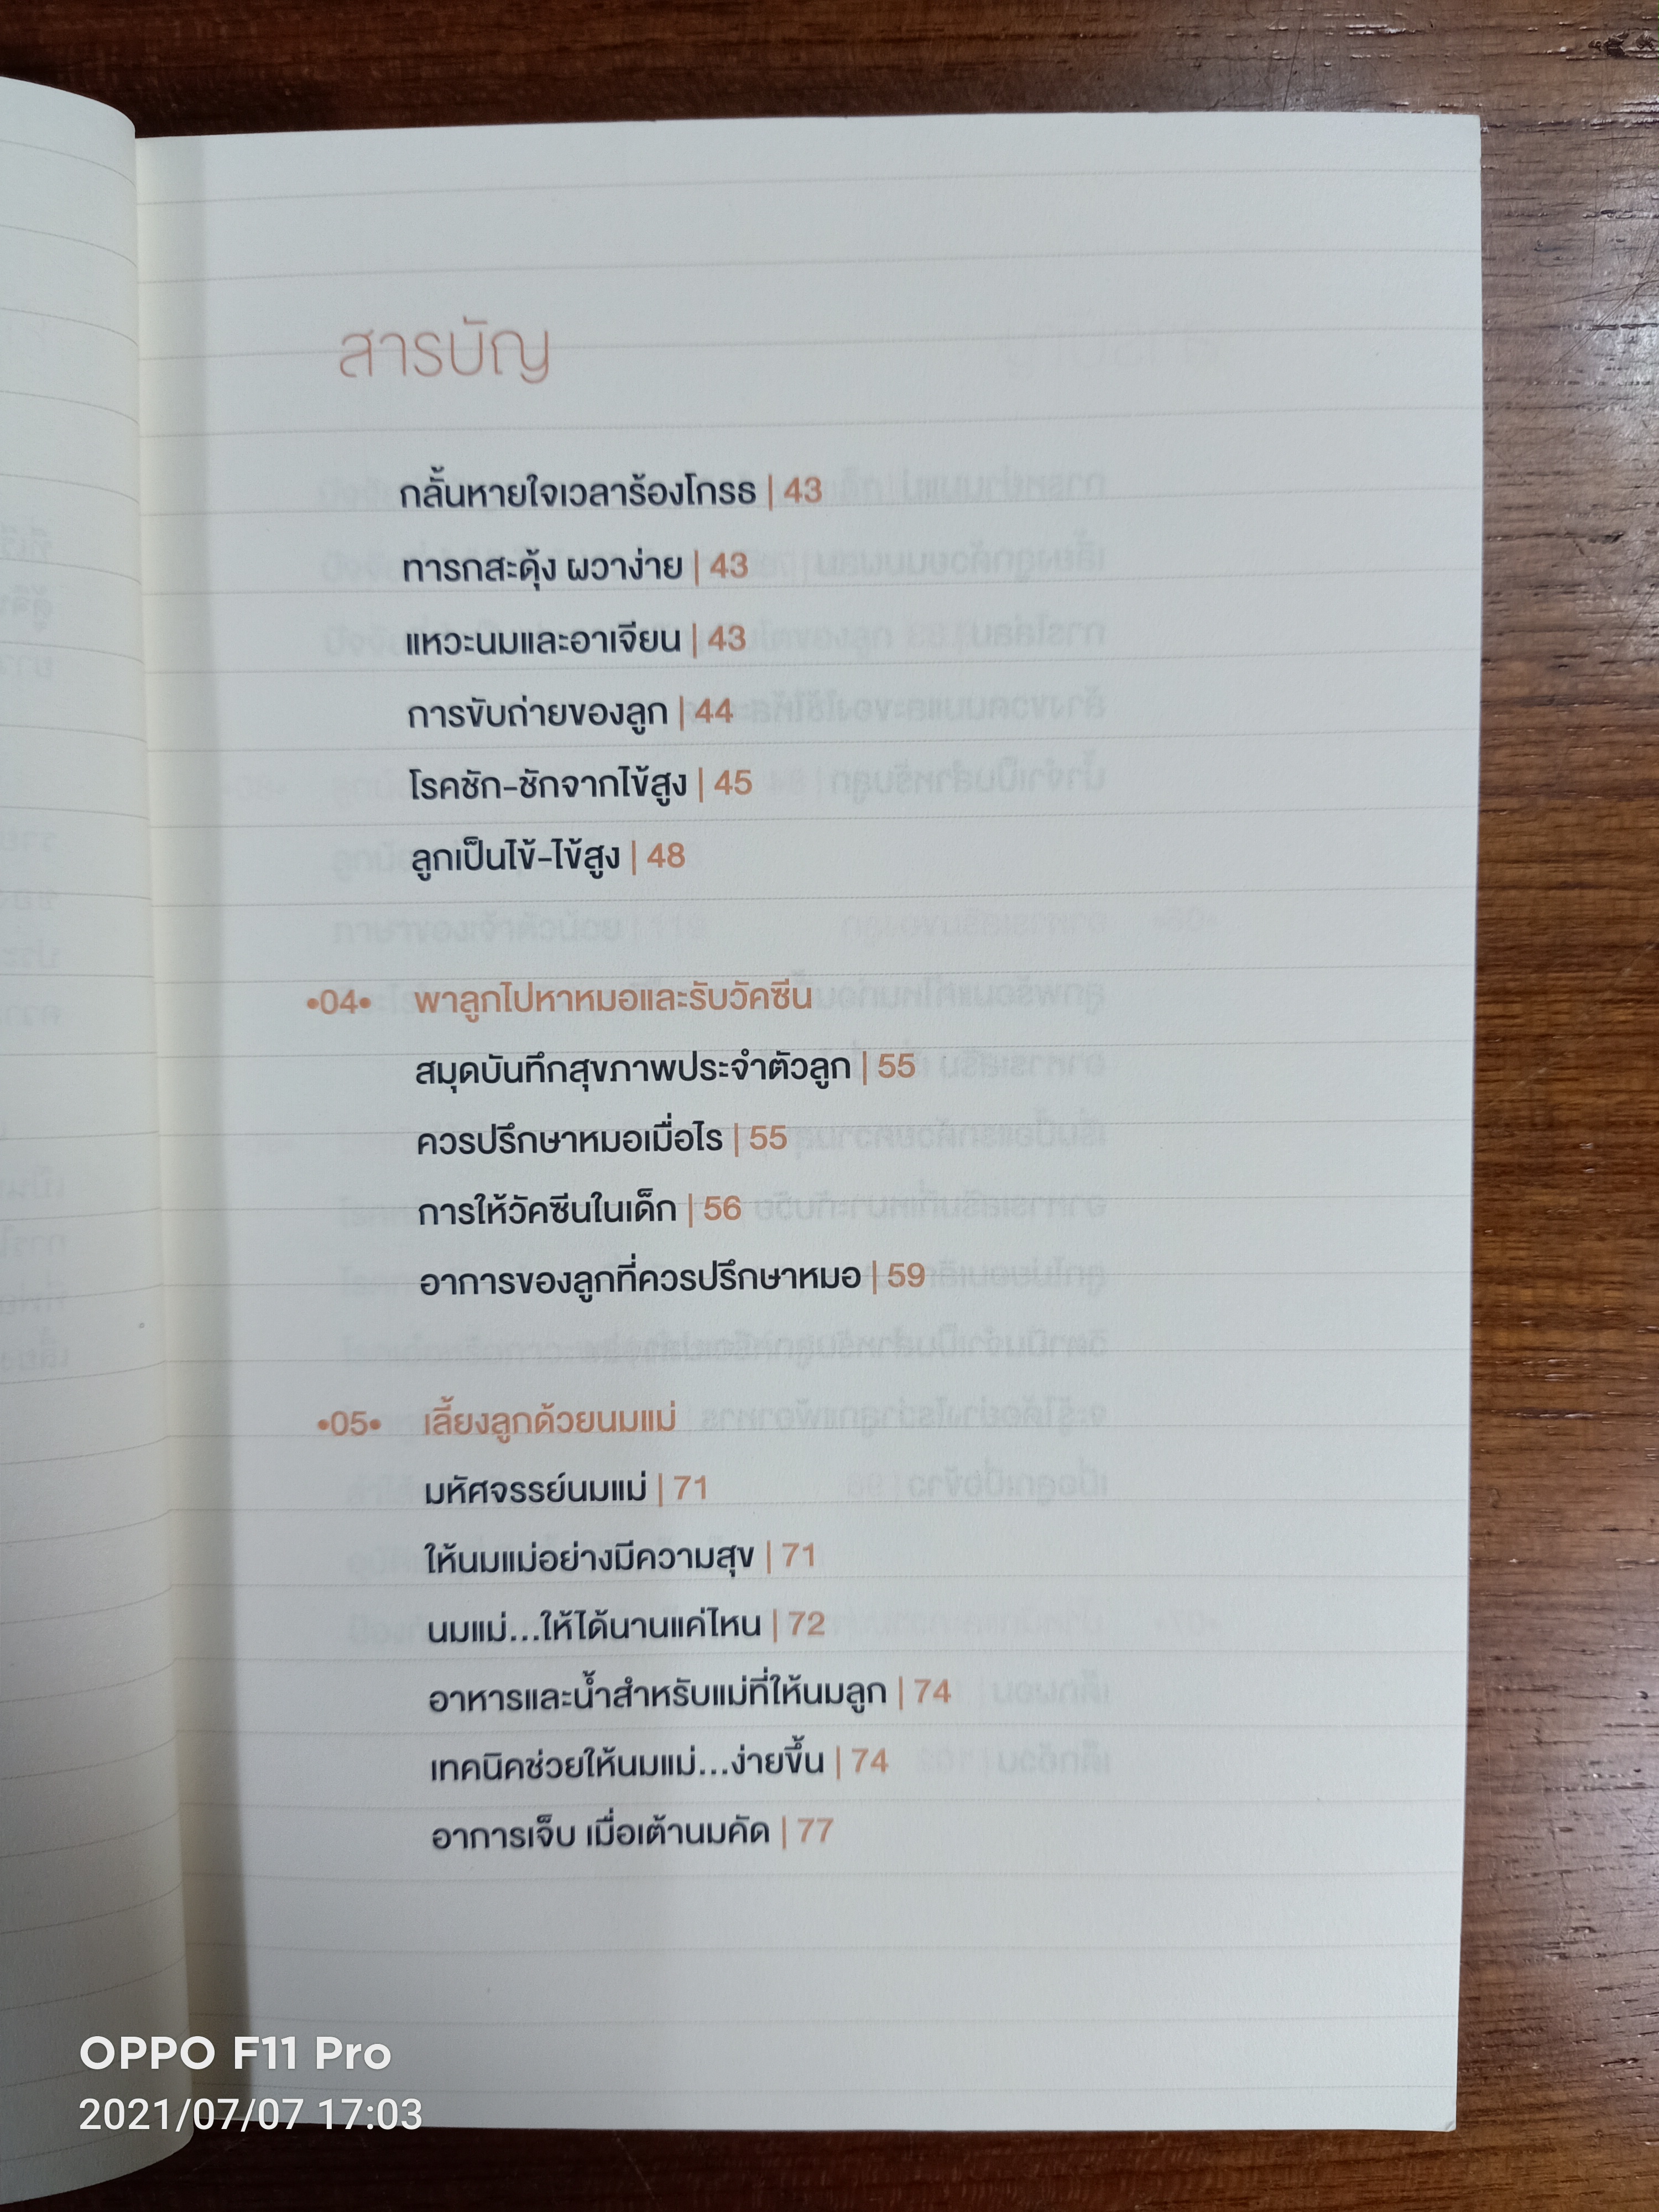 สารบัญ
กลั้นหายใจเวลาร้องโกรธ | 43
ทารกสะดุ้ง ผวาง่าย | 43
แหวะนมและอาเจียน | 43
การขับถ่ายของลูก | 44
โรคชัก-ชักจากไข้สูง | 45
ลูกเป็นไข้-ไข้สูง | 48
•04• พาลูกไปหาหมอและรับวัคซีน
สมุดบันทึกสุขภาพประจำตัวลูก | 55
ควรปรึกษาหมอเมื่อไร | 55
การให้วัคซีนในเด็ก | 56
อาการของลูกที่ควรปรึกษาหมอ | 59
•05• เลี้ยงลูกด้วยนมแม่
มหัศจรรย์นมแม่ | 71
ให้นมแม่อย่างมีความสุข | 71
นมแม่...ให้ได้นานแค่ไหน | 72
อาหารและน้ำสำหรับแม่ที่ให้นมลูก | 74
เทคนิคช่วยให้นมแม่...ง่ายขึ้น | 74
อาการเจ็บ เมื่อเต้านมคัด | 77
OPPO F11 Pro
2021/07/07 17:03